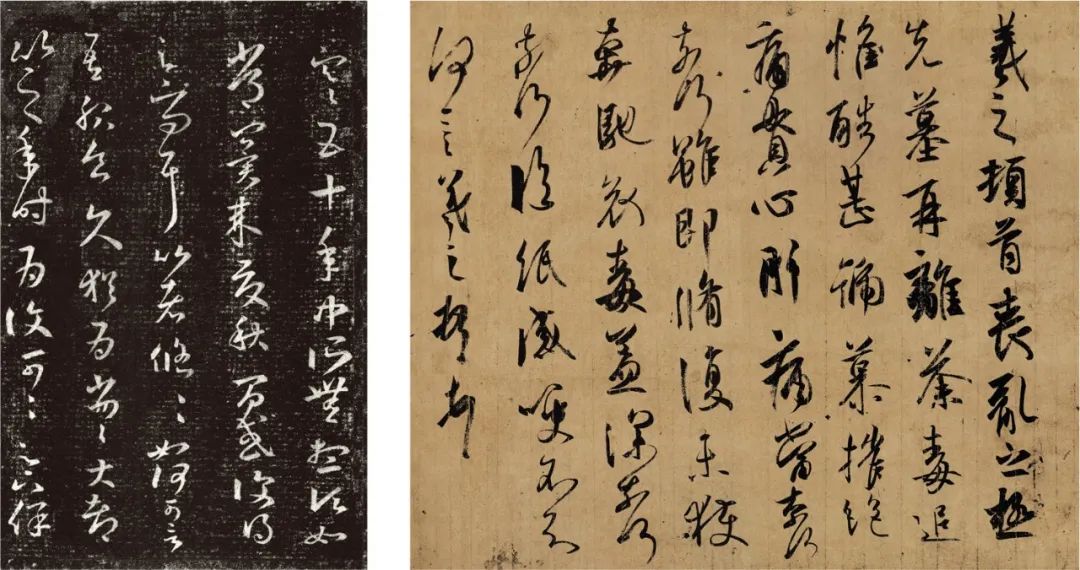 羲之頓首喪亂之極
先墓再離荼毒追
惟酷甚號慕摧絕
痛貫心肝痛當奈何
奈何雖即脩復未獲
奔馳哀毒益深奈何
奈何臨紙感哽不知
何言羲之頓首頓首
寒五十年中所無想頃如
常冀來夏秋間或復得
足下問耳比者悠悠如何可言
吾服食久猶為劣劣大都
比之年時為復可可足下保